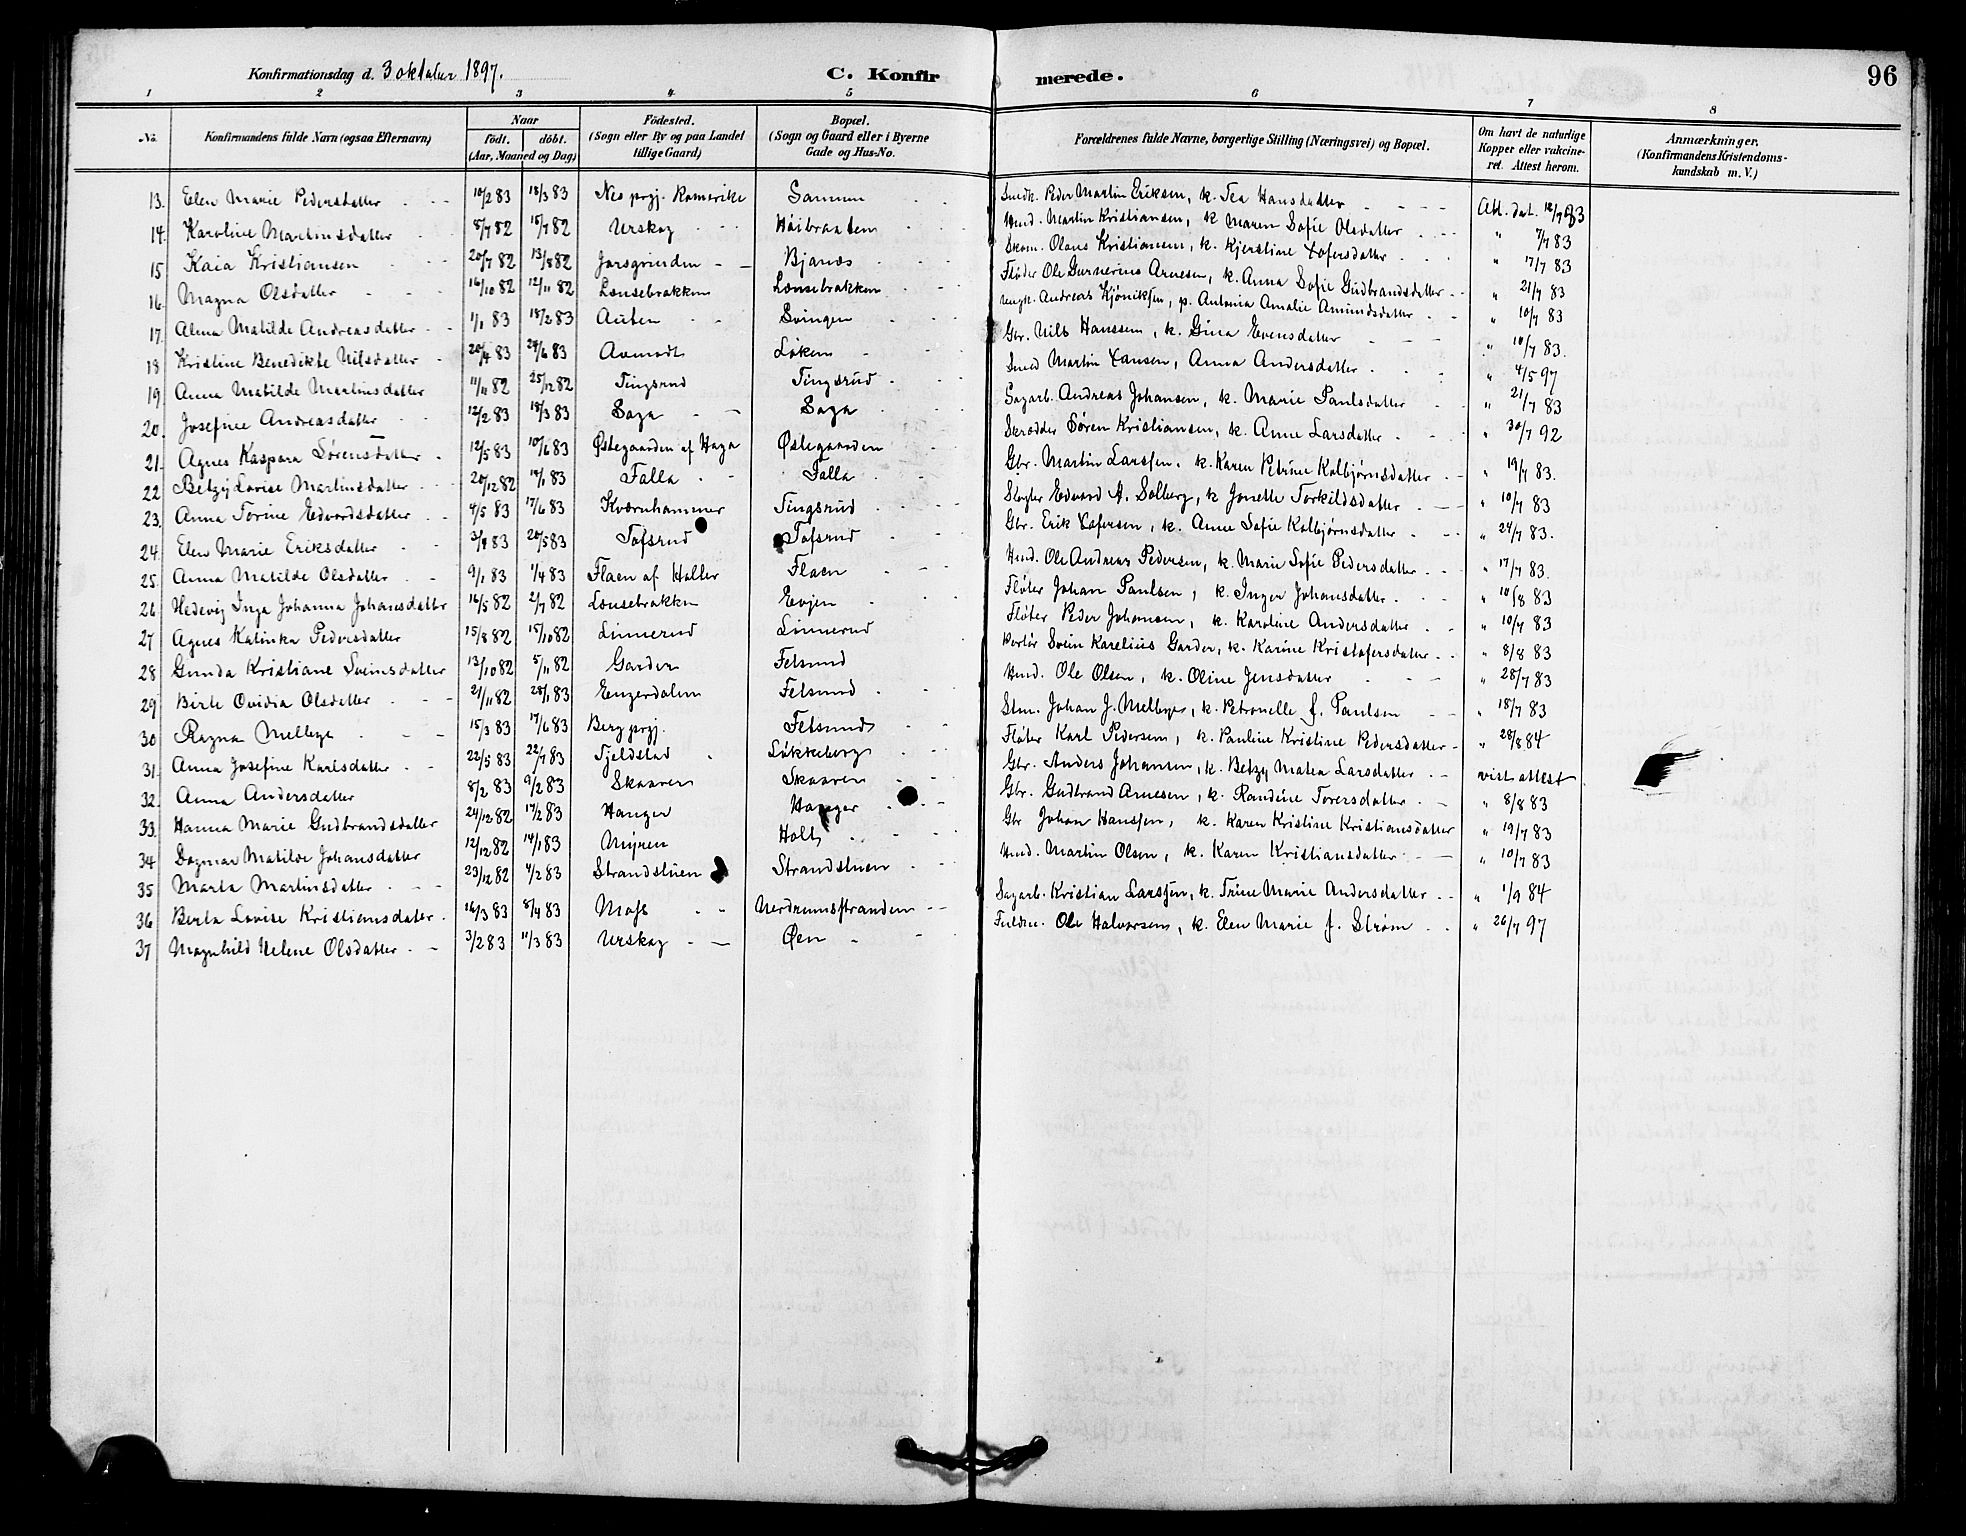 Konfirmationsdag d. 3 oktober 1897. C. Konfirmerede. 96
1 2 3 4 5 6 7 8
No. Konfirmandens fulde Navn (ogsaa Efternavn) Naar født. døbt. (Aar, Maaned og Dag) Fødested. (Sogn eller By og paa Landet tillige Gaard) Bopæl. (Sogn og Gaard eller i Byerne Gade og Hus-No. Forældrenes fulde Navne, borgerlige Stilling (Næringsvei) og Bopæl. Om havt de naturlige Kopper eller vakcineret. Attest herom. Anmærkninger. (Konfirmandens Kristendomskundskab m. V.)
13. Elen Marie Pedersdatter 10/2 83 18/3 83 Nes prgj. Romerike Sannem Smedk. Peder Martin Eriksen, k. Tea Hansdatter Att. dat. 12/7 83
14. Karoline Martinsdatter 8/7 82 15/7 82 Urskog Høibraaten Husmd. Martin Kristiansen, k. Maren Sofie Olsdatter " 7/7 83
15 Kaia Kristiansen 20/7 82 13/8 82 Jarsgrinden Bjanes Skom. Olaus Kristiansen, k. Kjerstine Tofersdatter " 17/7 83
16. Magna Olsdatter 16/10 82 12/11 82 Lousebrakken Lousebrakken Fløder Ole Gunnerius Arnesen, k. Anna Sofie Gudbrandsdatter " 21/7 83
17. Alma Matilde Andreasdatter 1/1 83 18/2 83 Auten Svingen Ungk. Andreas Kjøniksen, p. Antonia Amalie Amundsdatter " 10/7 83
18 Kristine Benedikte Nilsdatter 20/4 83 24/6 83 Aamodt Løken Gbr. Nils Hanssen, k. Gina Evensdatter " 10/7 83.
19 Anna Matilde Martinsdatter 11/11 82 25/12 82 Tingsrud Tingsrud Smed Martin Hansen, Anna Andersdatter " 4/5 97
20. Josefine Andreasdatter 12/2 83 18/3 83 Saga Saga Sagarb. Andreas Johansen, k. Marie Paulsdatter " 21/7 83
21. Agnes Kaspara Sørensdatter 12/5 83 10/6 83 Østegaarden af Haga Østegaarden Skrædder Søren Kristiansen, k. Anne Larsdatter " 30/7 92
22 Betzy Lovise Martinsdatter 20/12 82 14/1 83 Falla Falla Gbr. Martin Larssen, k. Karen Petrine Kolbjørnsdatter " 19/7 83.
23. Anna Torine Edvardsdatter 4/5 83 17/6 83 Kvernhammer Tingsrud Slagter Edvard A. Solberg, k. Jonette Torkildsdatter " 10/7 83
24. Elen Marie Eriksdatter 3/4 83 20/5 83 Tofsrud Tofsrud Gbr. Erik Tofersen, k. Anne Sofie Kolbjørnsdatter " 24/7 83.
25. Anna Matilde Olsdatter 9/1 83 1/4 83 Flaen af Holter Flaen Husmd. Ole Andreas Pedersen, k. Marie Sofie Pedersdatter " 17/7 83.
26 Hedevig Inga Johanna Johansdatter 16/5 82 2/7 82 Lousebrakken Evjen Fløter Johan Paulsen, k. Inger Johansdatter " 10/8 83
27 Agnes Katinka Pedersdatter 15/8 82 15/10 82 Linnerud Linnerud Fløter Peder Johansen, k. Karoline Andersdatter " 10/7 83
28 Gunda Kristiane Sveinsdatter 13/10 82 5/11 82 Garder Fetsund Portør Svein Karelius Garder, k. Karine Kristofersdatter " 8/8 83
29 Birte Ovidia Olsdatter 21/11 82 28/1 83 Engerdalen Fetsund Husmd. Ole Olsen, k. Oline Jensdatter " 28/7 83
30 Ragna Melbye 15/3 83 17/6 83 Berg prgj. Fetsund Stm. Johan J. Melbye, k. Petronelle f. Paulsen " 18/7 83
31. Anna Josefine Karlsdatter 22/5 83 22/7 83 Fjeldstad Løkkeberg Fløter Karl Pedersen, k. Pauline Kristine Pedersdatter " 28/8 84
32. Anna Andersdatter 8/2 83 9/2 83 Skaaren Skaaren Gbr. Anders Johansen, k. Betzy Matea Larsdatter vist attest
33. Hanna Marie Gudbrandsdatter 24/12 82 17/2 83 Hanger Hanger Gbr. Gudbrand Arnesen, k. Randine Torersdatter " 8/8 83
34 Dagmar Matilde Johansdatter 12/12 82 14/1 83 Mýren Holt Gbr Johan Hanssen, k. Karen Kristine Kristiansdatter " 19/7 83
35 Marta Martinsdatter 23/12 82 4/2 83 Strandstuen Strandstuen Husmd. Martin Olsen, k. Karen Kristiansdatter " 10/7 83
36 Berta Lovise Kristiansdatter 16/3 83 8/4 83 Moss Nerdrumsstranden Sagarb. Kristian Larssen, k. Trine Marie Andersdatter " 1/9 84
37 Magnhild Helene Olsdatter 3/2 83 11/3 83 Urskog Øen Ole Halvorsen, k. Elen Marie f. Strøm " 26/7 97